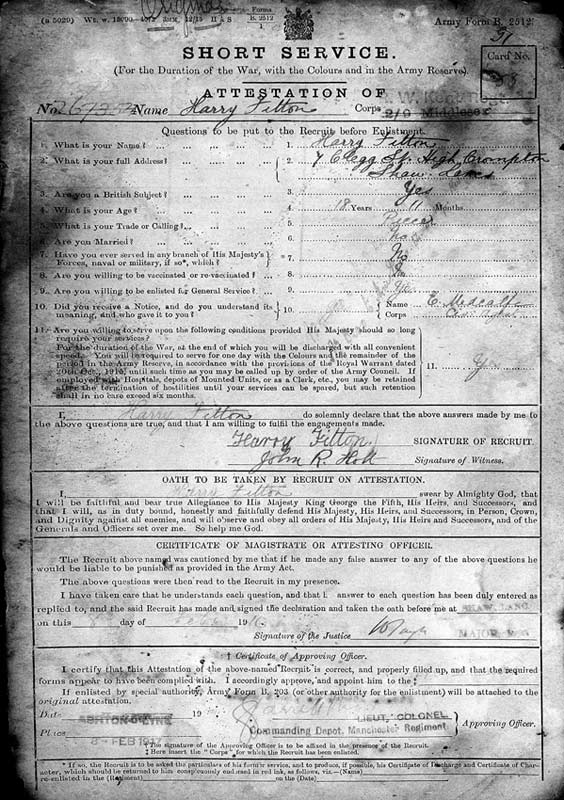 Original
(a 5029) Wt. w. Forms
B. 2512
1
Army Form B. 2512.
SHORT SERVICE.
(For the Duration of the War, with the Colours and in the Army Reserve).
Card No.
ATTESTATION OF
No. Name Harry Fitton Corps 2/9 Middlesex
Questions to be put to the Recruit before Enlistment.
1. What is your Name? ... ... ... 1. Harry Fitton
2. What is your full Address? ... ... 2. 7 Clegg St. High Crompton
Shaw. Lancs
3. Are you a British Subject? ... ... 3. Yes
4. What is your Age? ... ... ... 4. 18 Years 11 Months.
5. What is your Trade or Calling? ... ... 5. Piecer
6. Are you Married? ... ... ... 6. No
7. Have you ever served in any branch of His Majesty's
Forces, naval or military, if so*, which? 7. No
8. Are you willing to be vaccinated or re-vaccinated? 8.
9. Are you willing to be enlisted for General Service? 9. Yes
10. Did you receive a Notice, and do you understand its
meaning, and who gave it to you? 10. Name E. Medcalf
Corps
11. Are you willing to serve upon the following conditions provided His Majesty should so long
require your services?
For the duration of the War, at the end of which you will be discharged with all convenient
speed. You will be required to serve for one day with the Colours and the remainder of the
period in the Army Reserve, in accordance with the provisions of the Royal Warrant dated
20th Oct., 1915, until such time as you may be called up by order of the Army Council. If
employed with Hospitals, depots of Mounted Units, or as a Clerk, etc., you may be retained
after the termination of hostilities until your services can be spared, but such retention
shall in no case exceed six months. 11. Yes
I, Harry Fitton do solemnly declare that the above answers made by me to
the above questions are true, and that I am willing to fulfil the engagements made.
Harry Fitton. SIGNATURE OF RECRUIT.
John R. Holt Signature of Witness.
OATH TO BE TAKEN BY RECRUIT ON ATTESTATION.
I, Harry Fitton swear by Almighty God, that
I will be faithful and bear true Allegiance to His Majesty King George the Fifth, His Heirs, and Successors, and
that I will, as in duty bound, honestly and faithfully defend His Majesty, His Heirs, and Successors, in Person, Crown,
and Dignity against all enemies, and will observe and obey all orders of His Majesty, His Heirs and Successors, and of the
Generals and Officers set over me. So help me God.
CERTIFICATE OF MAGISTRATE OR ATTESTING OFFICER.
The Recruit above named was cautioned by me that if he made any false answer to any of the above questions he
would be liable to be punished as provided in the Army Act.
The above questions were then read to the Recruit in my presence.
I have taken care that he understands each question, and that his answer to each question has been duly entered as
replied to, and the said Recruit has made and signed the declaration and taken the oath before me at
on this day of 19
Signature of the Justice MAJOR
† Certificate of Approving Officer.
I certify that this Attestation of the above-named Recruit is correct, and properly filled up, and that the required
forms appear to have been complied with. I accordingly approve, and appoint him to the ‡
If enlisted by special authority, Army Form B. 203 (or other authority for the enlistment) will be attached to the
original attestation.
Date 19 LIEUT. COLONEL
ASHTON-U-LYNE
Place FEB 1917 Commanding Depot. Manchester Regiment Approving Officer.
† The signature of the Approving Officer is to be affixed in the presence of the Recruit.
‡ Here insert the "Corps" for which the Recruit has been enlisted.
* If so, the Recruit is to be asked the particulars of his former service, and to produce, if possible, his Certificate of Discharge and Certificate of Char-
acter, which should be returned to him conspicuously endorsed in red ink, as follows, viz.—(Name)
re-enlisted in the (Regiment) on the (Date)